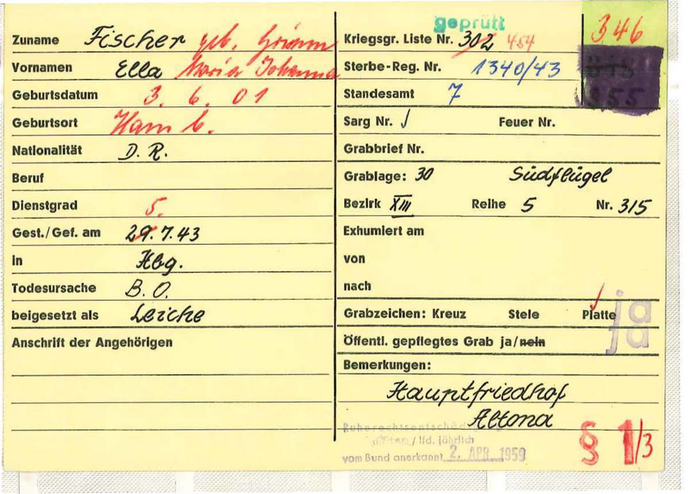 geprüft
346
Zuname Fischer geb. Grimm
Vornamen Ella Maria Johanna
Geburtsdatum 3. 6. 01
Geburtsort Hamb.
Nationalität D. R.
Beruf
Dienstgrad 5.
Gest./Gef. am 29. 7. 43
in Hbg.
Todesursache B. O.
beigesetzt als Leiche
Anschrift der Angehörigen
Kriegsgr. Liste Nr. 302 454
Sterbe-Reg. Nr. 1340/43
Standesamt 7
Sarg Nr. Feuer Nr.
Grabbrief Nr.
Grablage: 30 Südflügel
Bezirk XIII Reihe 5 Nr. 315
Exhumiert am
von
nach
Grabzeichen: Kreuz Stele Platte
ja
Öffentl. gepflegtes Grab ja/nein
ja
Bemerkungen:
Hauptfriedhof
Altona
/ lfd. jährlich
vom Bund anerkannt 2. APR. 1959
§ 1/3